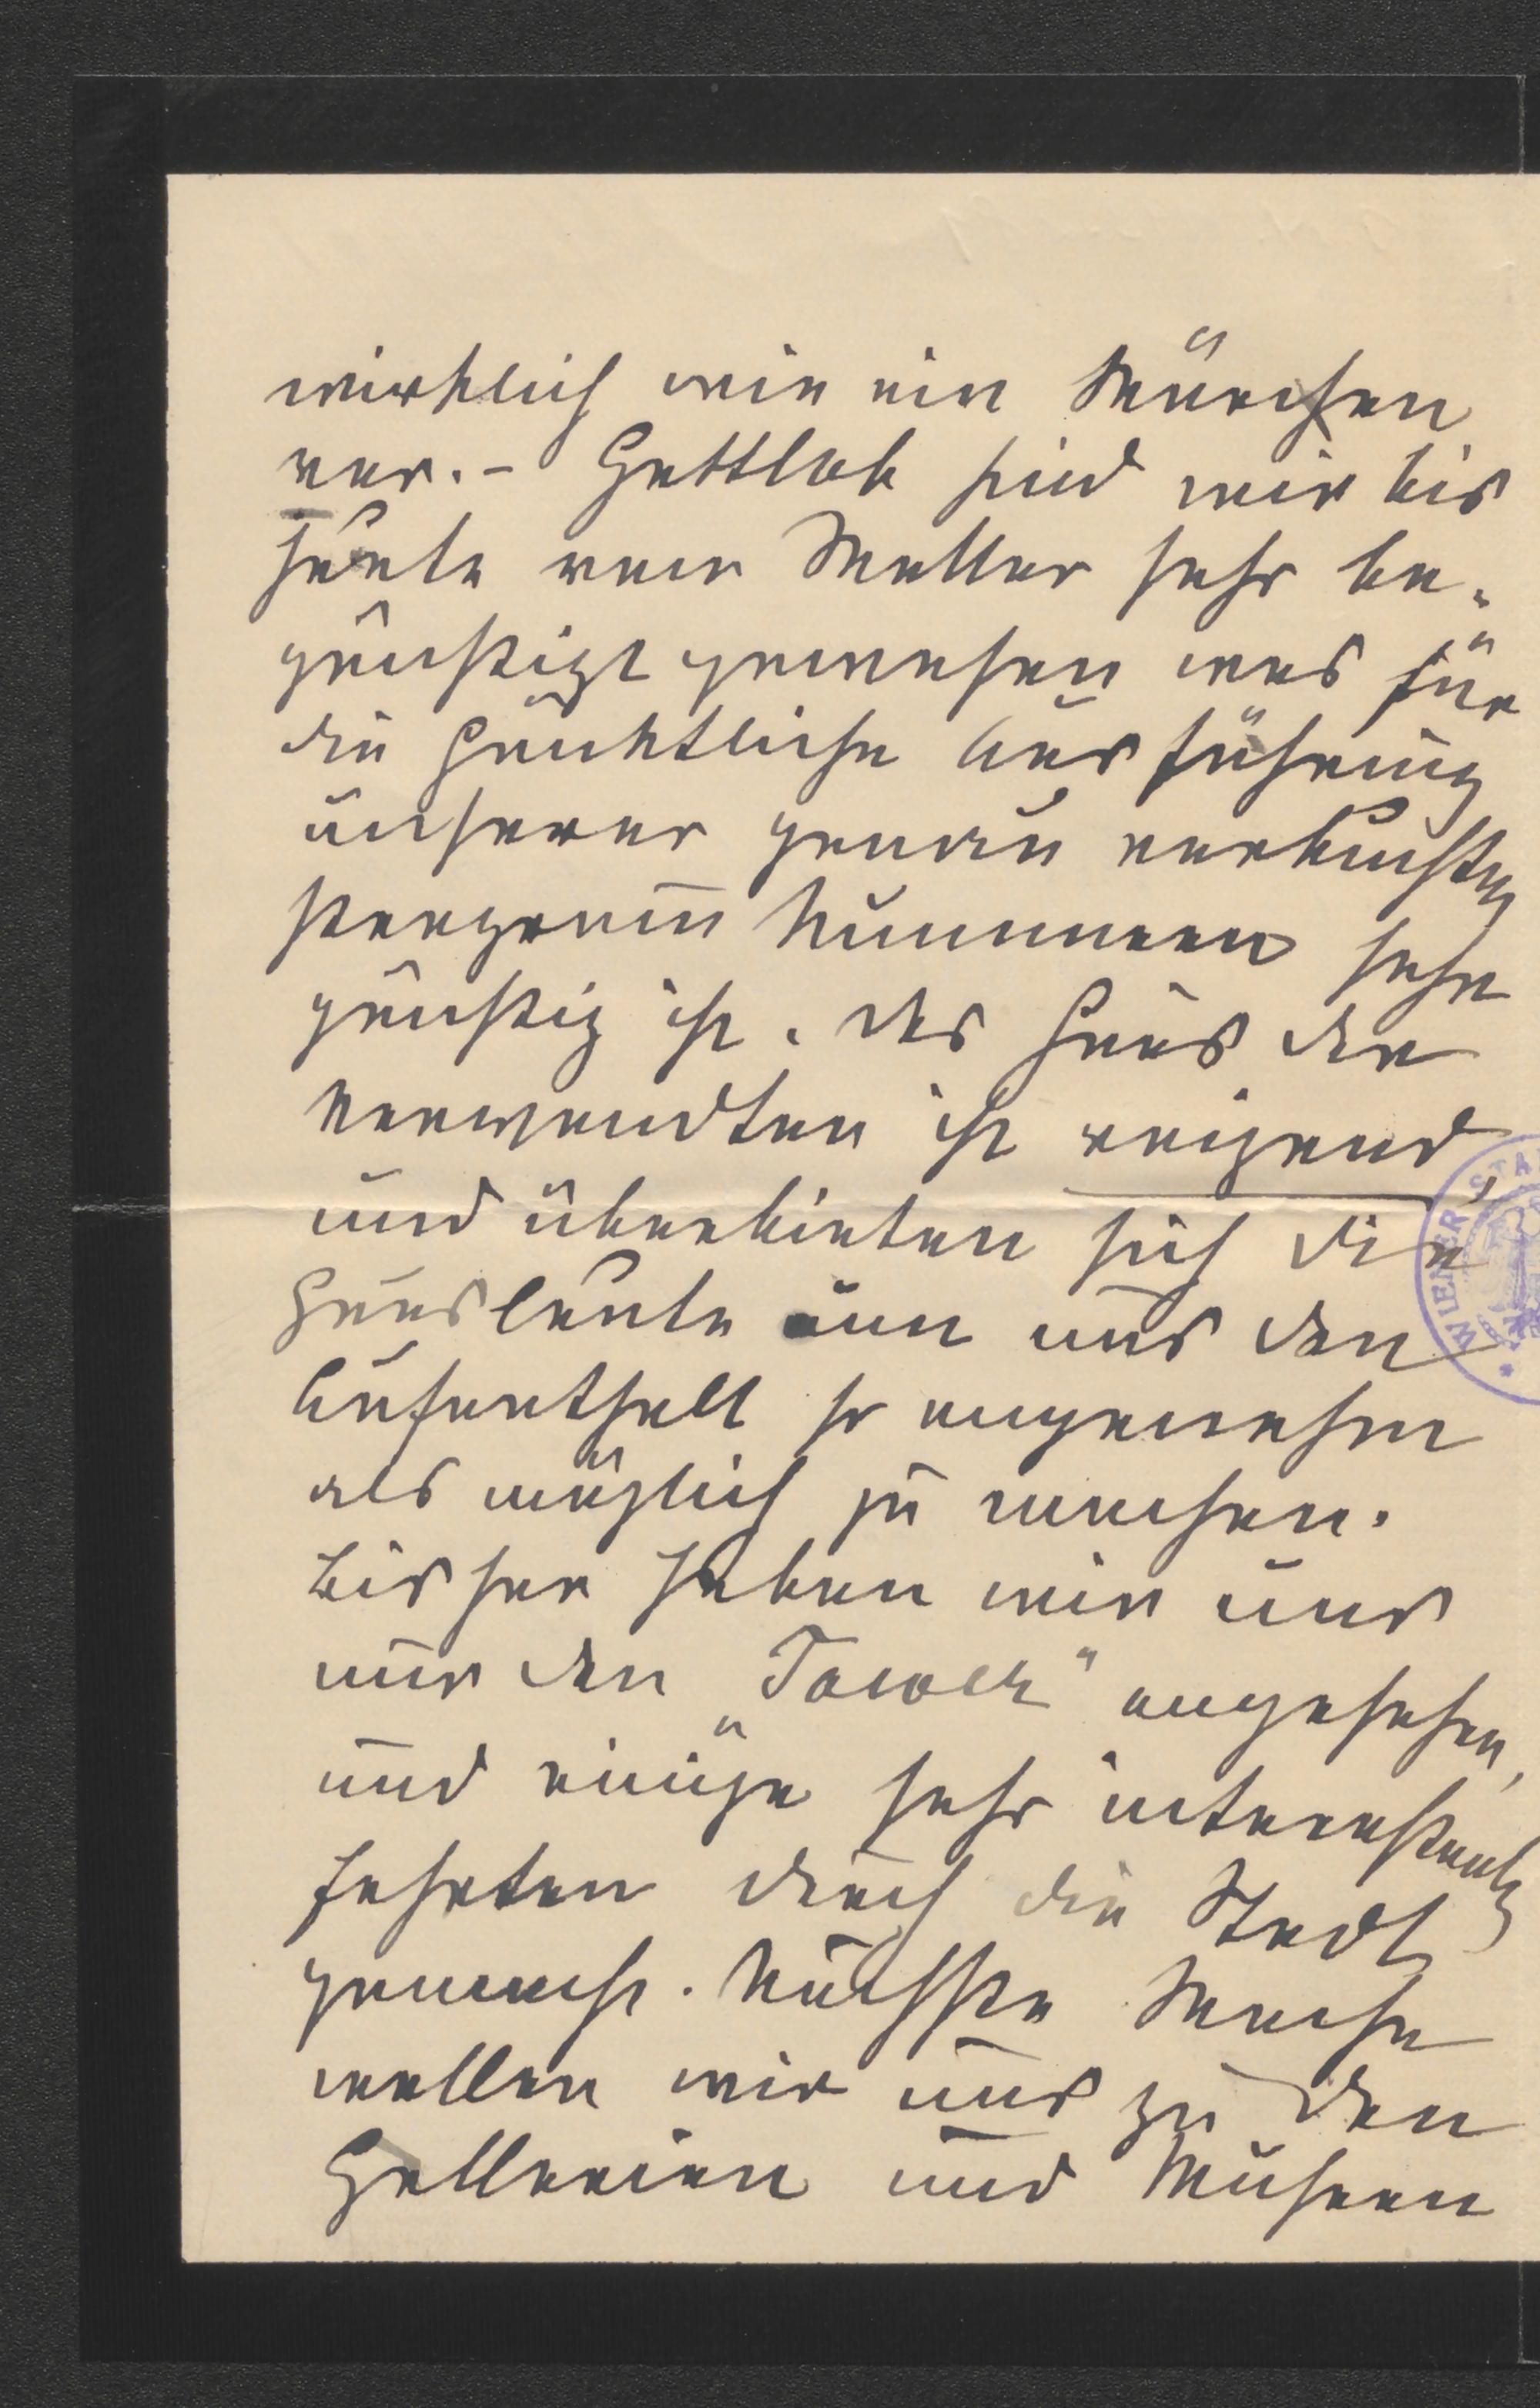 wirklich wie ein Märchen
vor. - Gottlob sind wir bis
heute vom Wetter sehr be-
günstigt gewesen was für
die pünktliche Ausführung
unserer genau verbuchten
Programm Nummern sehr
günstig ist. Das Haus der
Verwandten ist reizend,
und überbieten sich die
Hausleute um uns den
Aufenthalt so angenehm
als möglich zu machen.
Bisher haben wir uns
nur den „Tower" angesehen,
und einige sehr interessante
Fahrten durch die Stadt
gemacht. Nächste Woche
wollen wir uns zu den
Gallerien und Museen
WIENER STA